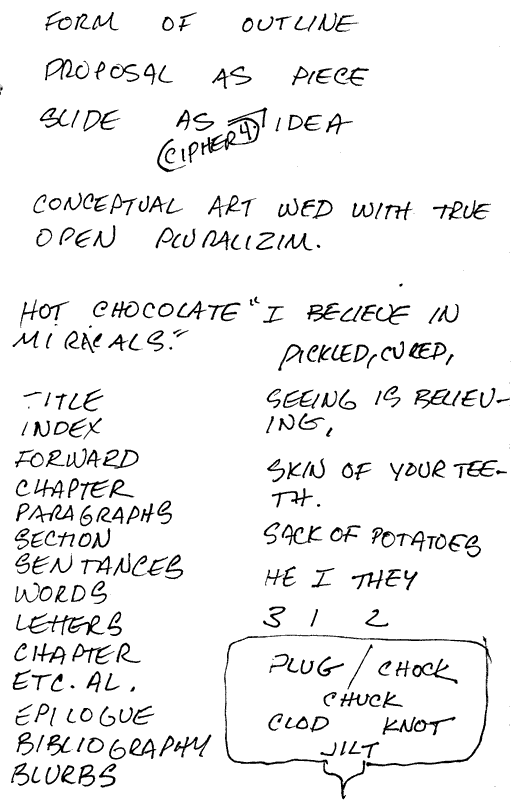 FORM OF OUTLINE
PROPOSAL AS PIECE
SLIDE AS IDEA
CIPHER 4.
CONCEPTUAL ART WED WITH TRUE
OPEN PLURALIZIM.
HOT CHOCOLATE "I BELIEVE IN
MIRICALS."
TITLE
INDEX
FORWARD
CHAPTER
PARAGRAPHS
SECTION
SENTANCES
WORDS
LETTERS
CHAPTER
ETC. AL.
EPILOGUE
BIBLIOGRAPHY
BLURBS
PICKLED, CURED,
SEEING IS BELIEV-
ING,
SKIN OF YOUR TEE-
TH.
SACK OF POTATOES
HE I THEY
3 1 2
PLUG / CHOCK
CHUCK
CLOD KNOT
JILT